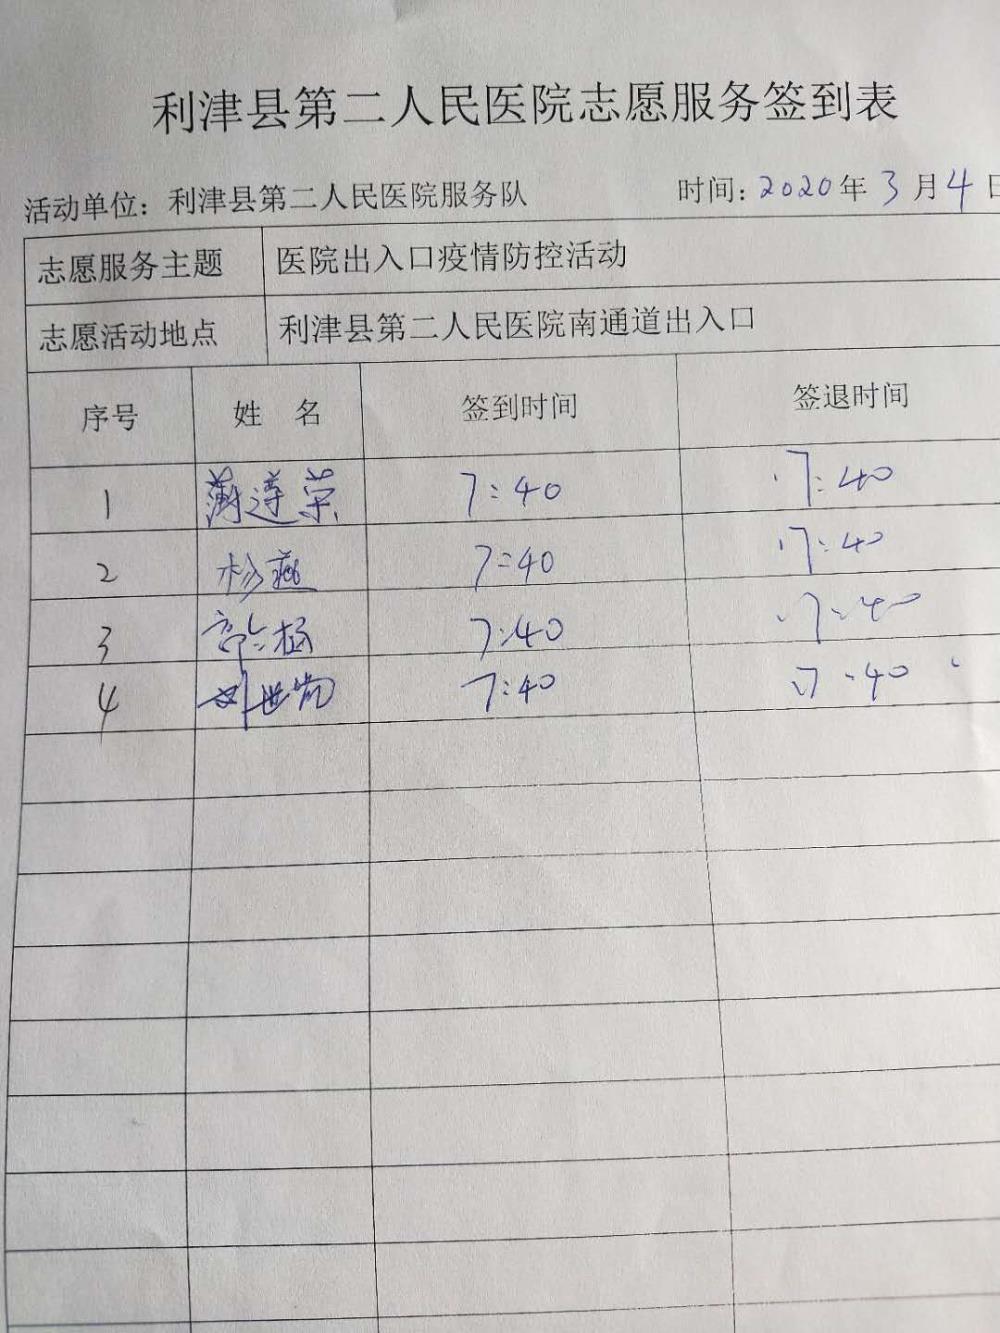 利津县第二人民医院志愿服务签到表
活动单位：利津县第二人民医院服务队 时间：2020年3月4日
志愿服务主题 医院出入口疫情防控活动
志愿活动地点 利津县第二人民医院南通道出入口
序号 姓 名 签到时间 签退时间
1 薄遵荣 7:40 17:40
2 杨燕 7:40 17:40
3 7:40 17:40
4 7:40 17:40